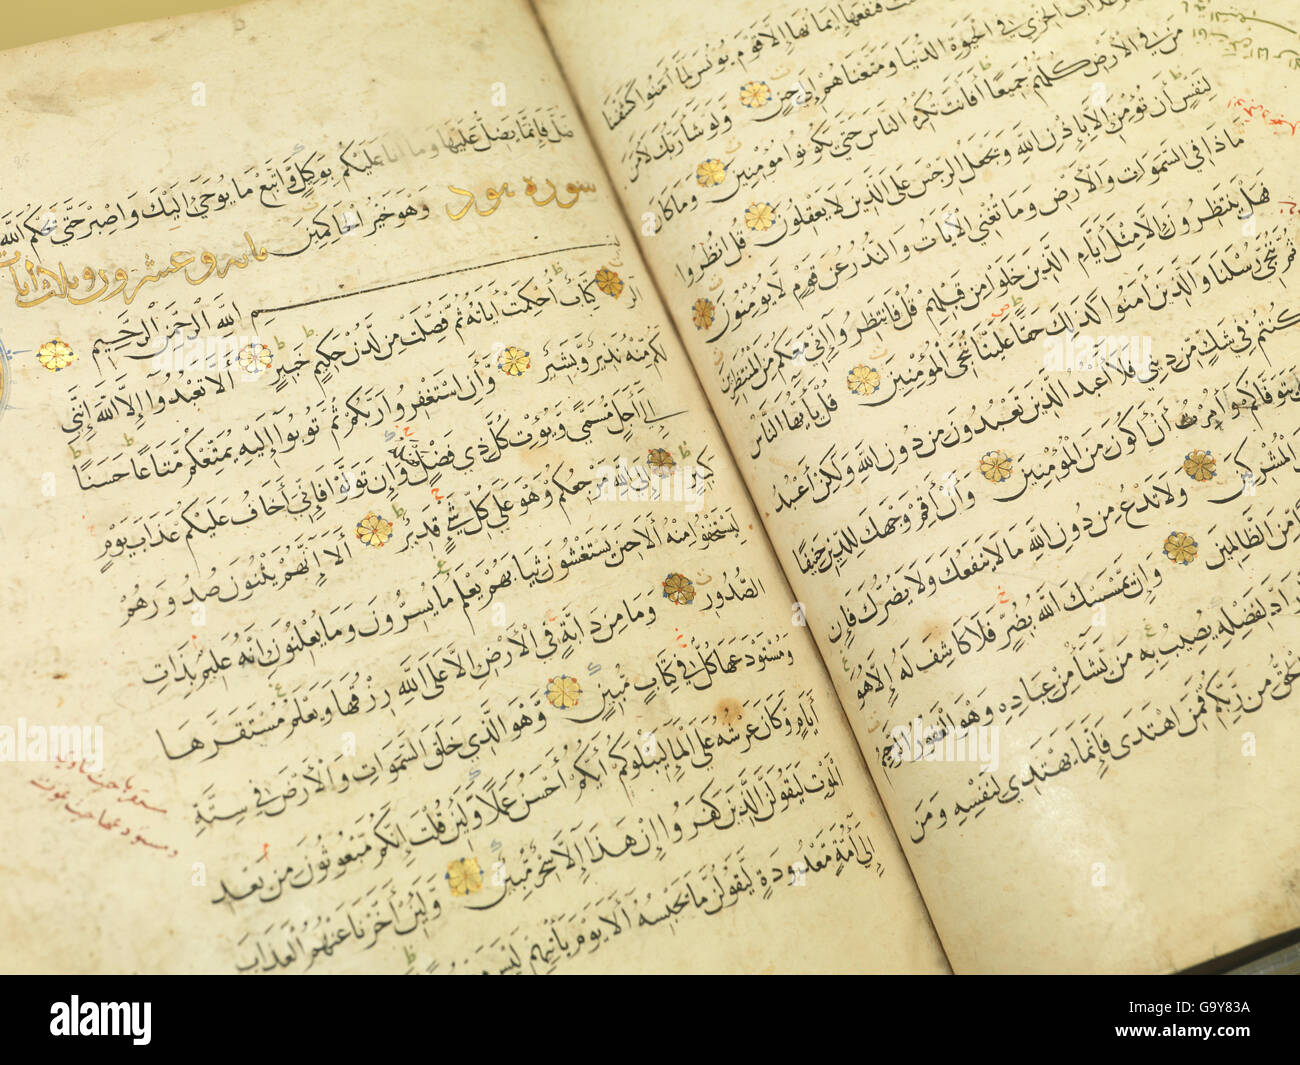 فنفعها إيمانها إلا قوم يونس لما آمنوا كشفنا
عذاب الخزي في الحيوة الدنيا ومتعناهم إلى حين ولو شاء ربك لآمن
من في الأرض كلهم جميعا أفأنت تكره الناس حتى يكونوا مؤمنين وما كان
لنفس أن تؤمن إلا بإذن الله ويجعل الرجس على الذين لا يعقلون قل انظروا
ماذا في السموات والأرض وما تغني الآيات والنذر عن قوم لا يؤمنون
فهل ينتظرون إلا مثل أيام الذين خلوا من قبلهم قل فانتظروا إني معكم من المنتظرين
ثم ننجي رسلنا والذين آمنوا كذلك حقا علينا ننج المؤمنين قل يا أيها الناس
كنتم في شك من ديني فلا أعبد الذين تعبدون من دون الله ولكن أعبد
يتوفاكم وأمرت أن أكون من المؤمنين وأن أقم وجهك للدين حنيفا
المشركين ولا تدع من دون الله ما لا ينفعك ولا يضرك فإن
من الظالمين وإن يمسسك الله بضر فلا كاشف له إلا هو
راد لفضله يصيب به من يشاء من عباده وهو الغفور الرحيم
الحق من ربكم فمن اهتدى فإنما يهتدي لنفسه ومن
ضل فإنما يضل عليها وما أنا عليكم بوكيل واتبع ما يوحى إليك واصبر حتى يحكم الله
وهو خير الحاكمين
سورة هود
مائة وعشرون وثلاث آيات
بسم الله الرحمن الرحيم
الر كتاب أحكمت آياته ثم فصلت من لدن حكيم خبير ألا تعبدوا إلا الله إنني
لكم منه نذير وبشير وأن استغفروا ربكم ثم توبوا إليه يمتعكم متاعا حسنا
إلى أجل مسمى ويؤت كل ذي فضل فضله وإن تولوا فإني أخاف عليكم عذاب يوم
كبير إلى الله مرجعكم وهو على كل شيء قدير ألا إنهم يثنون صدورهم
ليستخفوا منه ألا حين يستغشون ثيابهم يعلم ما يسرون وما يعلنون إنه عليم بذات
الصدور وما من دابة في الأرض إلا على الله رزقها ويعلم مستقرها
ومستودعها كل في كتاب مبين وهو الذي خلق السموات والأرض في ستة
أيام وكان عرشه على الماء ليبلوكم أيكم أحسن عملا ولئن قلت إنكم مبعوثون من بعد
الموت ليقولن الذين كفروا إن هذا إلا سحر مبين ولئن أخرنا عنهم العذاب
إلى أمة معدودة ليقولن ما يحبسه ألا يوم يأتيهم ليس
alamy
alamy stock photo
G9Y83A
www.alamy.com